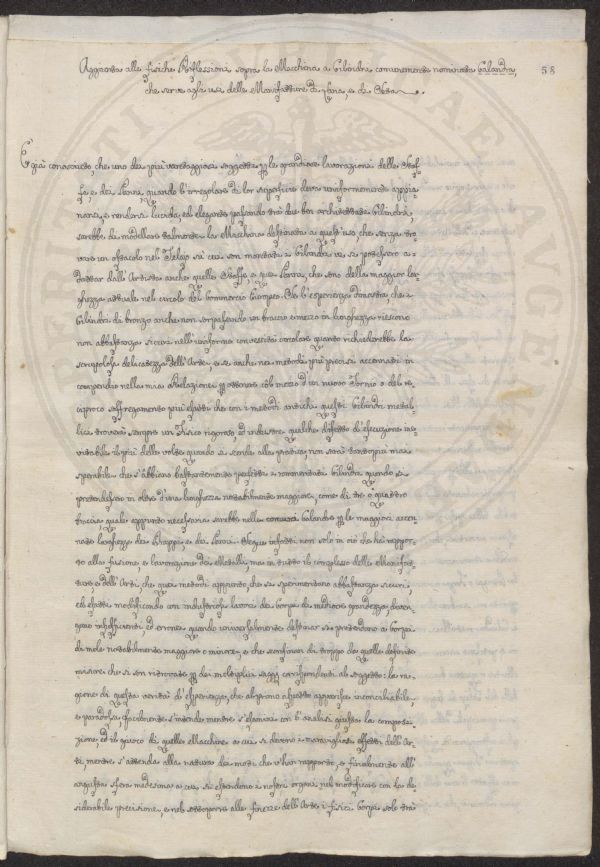 Aggiunta alle fisiche Riflessioni sopra la Macchina a Cilindri comunemente nominata Calandra,
58
che serve agli usi delle Manifatture di Lana, e di Seta
È già conosciuto, che uno dei più vantaggiosi soggetti per le grandiose lavorazioni delle Stof-
fe, e dei Panni, quando l'irregolare di lor superficie deve uniformemente appia-
narsi, e rendersi lucida, ed elegante passando tra due ben architettati Cilindri,
sarebbe di modellare talmente la Macchina destinata a quest'uso, che senza tro-
vare un ostacolo nel Telajo in cui son montati i Cilindri vi si potessero a-
dattar dall'Artista anche quelle Stoffe, e quei Panni, che sono della maggior lar-
ghezza attuale nel circolo del Commercio Europeo. Ma l'esperienza dimostra, che i
Cilindri di bronzo anche non sorpassando un braccio e mezzo in lunghezza riescono
non abbastanza sicuri nell'uniforme convessità circolare quanto richiederebbe la
scrupolosa delicatezza dell'Arte, e se anche nei metodi più precisi accennati in
compendio nella mia Relazione per ottenere col mezzo d'un nuovo Tornio o del re-
ciproco soffregamento più esatti che con i metodi antichi questi Cilindri metal-
lici troverà sempre un Fisico rigoroso, ed industre qualche difetto d'esecuzione ine-
vitabile il più delle volte quando si scende alla pratica, non sarà tantopiù mai
sperabile che s'abbiano bastantemente perfetti i rammentati Cilindri quando si
pretendessero in oltre d'una lunghezza notabilmente maggiore, come di tre o quattro
braccia, quale appunto necessaria sarebbe nelle Calandre per le maggiori accen-
nate larghezze dei Drappi, e dei Panni. Segue infatti non solo in ciò che ha rappor-
to alla fusione, e lavorazione dei Metalli, ma in tutto il complesso delle Manifat-
ture, e dell'Arti, che quei metodi appunto, che si sperimentano abbastanza sicuri,
ed esatti modificando con industrioso lavoro dei Corpi di mediocre grandezza, diven-
gano insufficienti ed erronei quando universalmente destinar si pretendano a Corpi
di mole notabilmente maggiore o minore, e che sconfinan di troppo da quelle definite
misure che si son ritrovate per dei moltiplici saggj corrispondenti al soggetto: la ra-
gione di questa verità d'esperienza, che al primo aspetto apparisce inconciliabile,
e paradossa, facilmente s'intende mentre s'esamini con l'analisi giusta la composi-
zione, ed il giuoco di quelle Macchine a cui si devono i maravigliosi effetti dell'Ar-
ti, mentre s'attenda alla natura dei moti che v'han rapporto, e finalmente all'
angusta sfera medesima a cui si estendono i nostri organi nel modificar con la de-
siderabile precisione, e nel sottoporre alle finezze dell'Arte i fisici Corpi solo tra